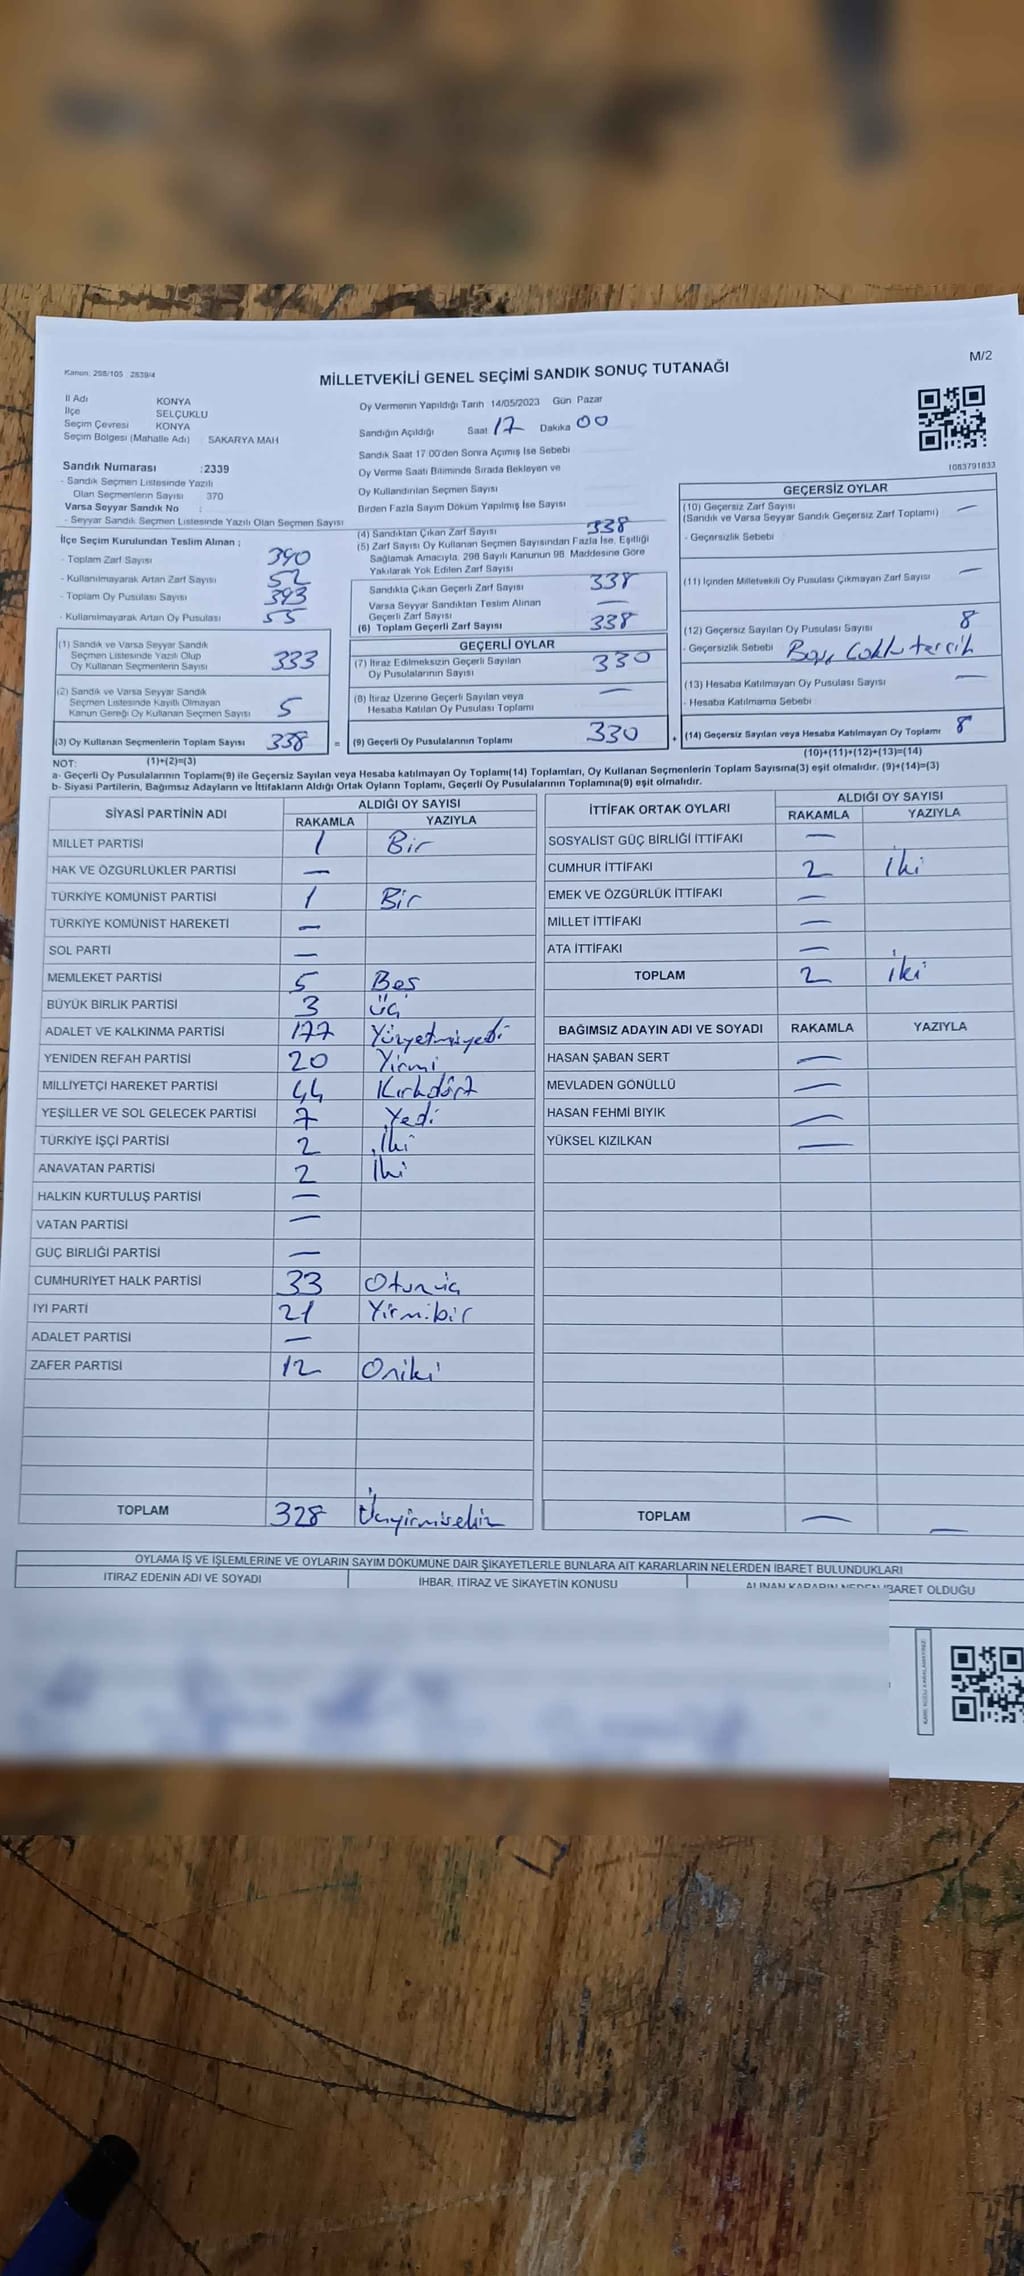 M/2
Kanun: 298/105 : 2839/4
MİLLETVEKİLİ GENEL SEÇİMİ SANDIK SONUÇ TUTANAĞI
İl Adı KONYA
İlçe SELÇUKLU
Seçim Çevresi KONYA
Seçim Bölgesi (Mahalle Adı) SAKARYA MAH
Sandık Numarası :2339
- Sandık Seçmen Listesinde Yazılı
Olan Seçmenlerin Sayısı 370
Varsa Seyyar Sandık No :
- Seyyar Sandık Seçmen Listesinde Yazılı Olan Seçmen Sayısı
İlçe Seçim Kurulundan Teslim Alınan ;
- Toplam Zarf Sayısı 390
- Kullanılmayarak Artan Zarf Sayısı 52
- Toplam Oy Pusulası Sayısı 393
- Kullanılmayarak Artan Oy Pusulası 55
(1) Sandık ve Varsa Seyyar Sandık
Seçmen Listesinde Yazılı Olup
Oy Kullanan Seçmenlerin Sayısı 333
(2) Sandık ve Varsa Seyyar Sandık
Seçmen Listesinde Kayıtlı Olmayan
Kanun Gereği Oy Kullanan Seçmen Sayısı 5
(3) Oy Kullanan Seçmenlerin Toplam Sayısı 338 =
(1)+(2)=(3)
Oy Vermenin Yapıldığı Tarih 14/05/2023 Gün Pazar
Sandığın Açıldığı Saat 17 Dakika 00
Sandık Saat 17:00'den Sonra Açımış İse Sebebi
Oy Verme Saati Bitiminde Sırada Bekleyen ve
Oy Kullandırılan Seçmen Sayısı
Birden Fazla Sayım Döküm Yapılmış İse Sayısı
(4) Sandıktan Çıkan Zarf Sayısı 338
(5) Zarf Sayısı Oy Kullanan Seçmen Sayısından Fazla İse, Eşitliği
Sağlamak Amacıyla, 298 Sayılı Kanunun 98. Maddesine Göre
Yakılarak Yok Edilen Zarf Sayısı
Sandıkta Çıkan Geçerli Zarf Sayısı 338
Varsa Seyyar Sandıktan Teslim Alınan
Geçerli Zarf Sayısı —
(6) Toplam Geçerli Zarf Sayısı 338
GEÇERLİ OYLAR
(7) İtiraz Edilmeksizin Geçerli Sayılan
Oy Pusulalarının Sayısı 330
(8) İtiraz Üzerine Geçerli Sayılan veya
Hesaba Katılan Oy Pusulası Toplamı —
(9) Geçerli Oy Pusulalarının Toplamı 330 +
1083791833
GEÇERSİZ OYLAR
(10) Geçersiz Zarf Sayısı —
(Sandık ve Varsa Seyyar Sandık Geçersiz Zarf Toplamı)
- Geçersizlik Sebebi
(11) İçinden Milletvekili Oy Pusulası Çıkmayan Zarf Sayısı —
(12) Geçersiz Sayılan Oy Pusulası Sayısı 8
- Geçersizlik Sebebi Boş, Çoklu tercih
(13) Hesaba Katılmayan Oy Pusulası Sayısı —
- Hesaba Katılmama Sebebi
(14) Geçersiz Sayılan veya Hesaba Katılmayan Oy Toplamı 8
(10)+(11)+(12)+(13)=(14)
NOT:
a- Geçerli Oy Pusulalarının Toplamı(9) ile Geçersiz Sayılan veya Hesaba katılmayan Oy Toplamı(14) Toplamları, Oy Kullanan Seçmenlerin Toplam Sayısına(3) eşit olmalıdır. (9)+(14)=(3)
b- Siyasi Partilerin, Bağımsız Adayların ve İttifakların Aldığı Ortak Oyların Toplamı, Geçerli Oy Pusulalarının Toplamına(9) eşit olmalıdır.
SİYASİ PARTİNİN ADI ALDIĞI OY SAYISI
RAKAMLA YAZIYLA
MİLLET PARTİSİ 1 Bir
HAK VE ÖZGÜRLÜKLER PARTİSİ —
TÜRKİYE KOMÜNİST PARTİSİ 1 Bir
TÜRKİYE KOMÜNİST HAREKETİ —
SOL PARTİ —
MEMLEKET PARTİSİ 5 Beş
BÜYÜK BİRLİK PARTİSİ 3 Üç
ADALET VE KALKINMA PARTİSİ 177 Yüzyetmişyedi
YENİDEN REFAH PARTİSİ 20 Yirmi
MİLLİYETÇİ HAREKET PARTİSİ 44 Kırkdört
YEŞİLLER VE SOL GELECEK PARTİSİ 7 Yedi
TÜRKİYE İŞÇİ PARTİSİ 2 İki
ANAVATAN PARTİSİ 2 İki
HALKIN KURTULUŞ PARTİSİ —
VATAN PARTİSİ —
GÜÇ BİRLİĞİ PARTİSİ —
CUMHURİYET HALK PARTİSİ 33 Otuzüç
İYİ PARTİ 21 Yirmibir
ADALET PARTİSİ —
ZAFER PARTİSİ 12 Oniki
TOPLAM 328 Üçyüzyirmisekiz
İTTİFAK ORTAK OYLARI ALDIĞI OY SAYISI
RAKAMLA YAZIYLA
SOSYALİST GÜÇ BİRLİĞİ İTTİFAKI —
CUMHUR İTTİFAKI 2 İki
EMEK VE ÖZGÜRLÜK İTTİFAKI —
MİLLET İTTİFAKI —
ATA İTTİFAKI —
TOPLAM 2 İki
BAĞIMSIZ ADAYIN ADI VE SOYADI RAKAMLA YAZIYLA
HASAN ŞABAN SERT —
MEVLADEN GÖNÜLLÜ —
HASAN FEHMİ BIYIK —
YÜKSEL KIZILKAN —
TOPLAM — —
OYLAMA İŞ VE İŞLEMLERİNE VE OYLARIN SAYIM DÖKÜMÜNE DAİR ŞİKAYETLERLE BUNLARA AİT KARARLARIN NELERDEN İBARET BULUNDUKLARI
İTİRAZ EDENİN ADI VE SOYADI İHBAR, İTİRAZ VE ŞİKAYETİN KONUSU ALINAN KARARIN NEDEN İBARET OLDUĞU